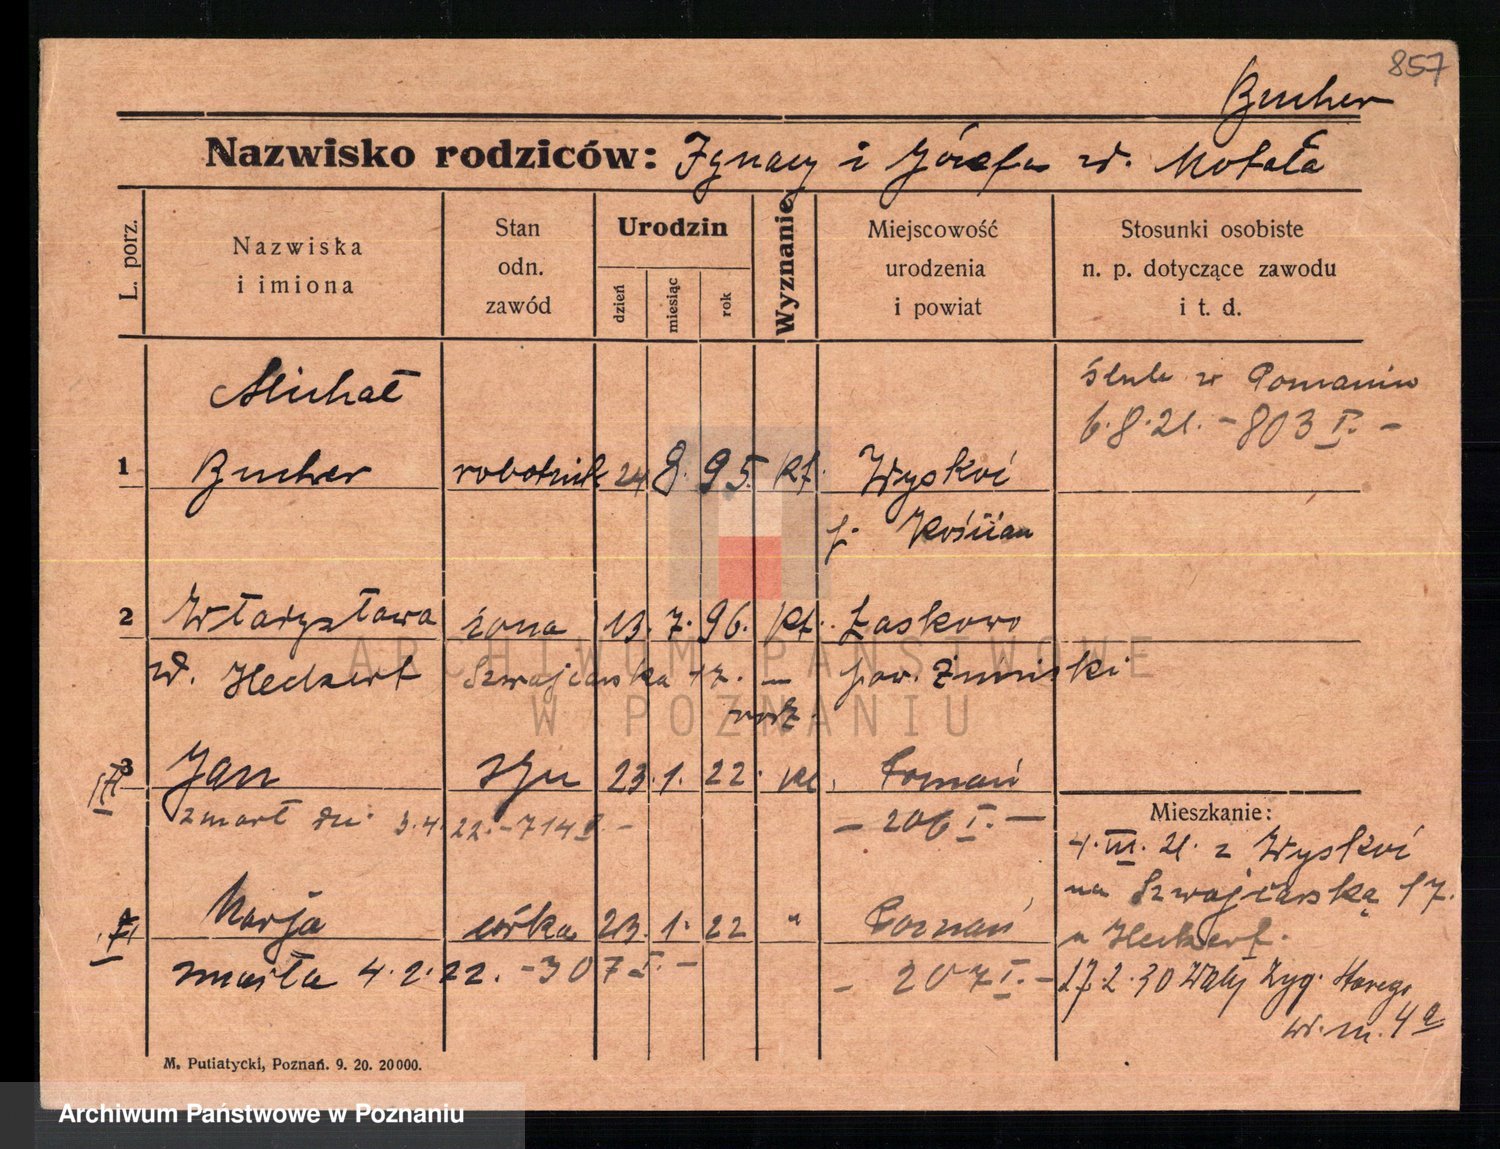 857
Bucher
Nazwisko rodziców: Ignacy i Józefa zd. Motała
L. porz.
Nazwiska
i imiona
Stan
odn.
zawód
Urodzin
dzień
miesiąc
rok
Wyznanie
Miejscowość
urodzenia
i powiat
Stosunki osobiste
n. p. dotyczące zawodu
i t. d.
ślub w Poznaniu
6.8.21. - 803 I. -
Michał
1 Bucher robotnik 24 8. 95. kt. Wyskoć
p. Kościan
2 Władysława żona 13. 7. 96. kt. Łaskowo
zd. Heckert Szwajcarska 17. — pow. Żniński
rodz.
3 Jan syn 23. 1. 22. kt. Poznań
zmarł dn. 3.4.22. - 714 I. - — 206 I. —
4 Marja córka 23. 1. 22 " Poznań
zmarła 4.2.22. - 307 I. - - 207 I. -
Mieszkanie:
4.III.21. z Wyskoć
na Szwajcarską 17.
u Heckert.
17.2.30 Wały Zyg. Starego
m. 4a
M. Putiatycki, Poznań. 9. 20. 20000.
ARCHIWUM PAŃSTWOWE
W POZNANIU
Archiwum Państwowe w Poznaniu